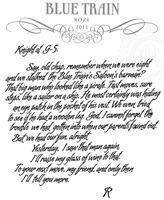 BLUE TRAIN
ROZE
2011
Knight at G-5.
Say, old chap, remember when we were eight
and we stalked the Blue Train's Saloon's barman?
That big man who looked like a pirate. Fast moves, sure
steps, like a sailor on a ship. He most certainly was hiding
an eye patch in the pocket of his vest. We even tried
to see if he had a wooden leg. God, I cannot forget the
trouble we had gotten into when our parents found out.
But we had our fun, alright.
Yesterday, I saw that man again.
I'll raise my glass of wine to that.
To your next move, my friend, and only then
I'll tell you more.
R